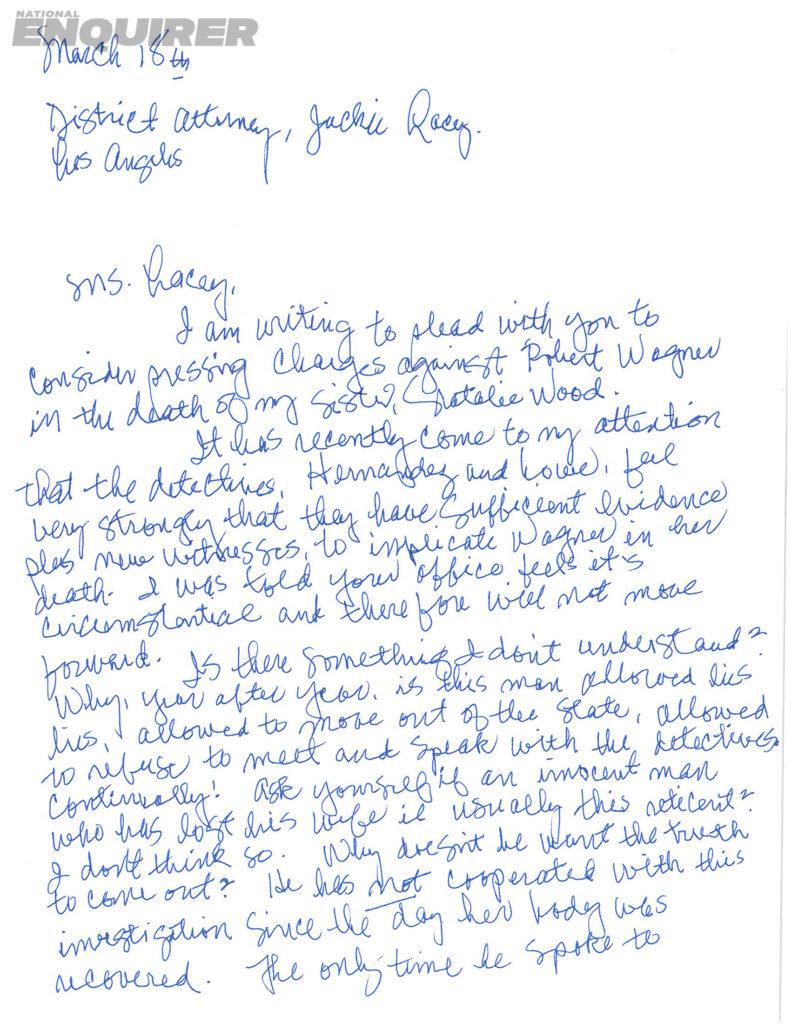 NATIONAL
ENQUIRER
March 18th
District Attorney, Jackie Lacey.
Los Angeles
Ms. Lacey,
I am writing to plead with you to
consider pressing charges against Robert Wagner
in the death of my sister, Natalie Wood.
It has recently come to my attention
that the detectives, Hernandez and Lowe, feel
very strongly that they have sufficient evidence
plus new witnesses, to implicate Wagner in her
death. I was told your office feels it's
circumstantial and therefore will not move
forward. Is there something I don't understand?
Why, year after year, is this man allowed his
lies, allowed to move out of the state, allowed
to refuse to meet and speak with the detectives
continually! Ask yourself if an innocent man
who has lost his wife is usually this reticent?
I don't think so. Why doesn't he want the truth
to come out? He has not cooperated with this
investigation since the day her body was
recovered. The only time he spoke to